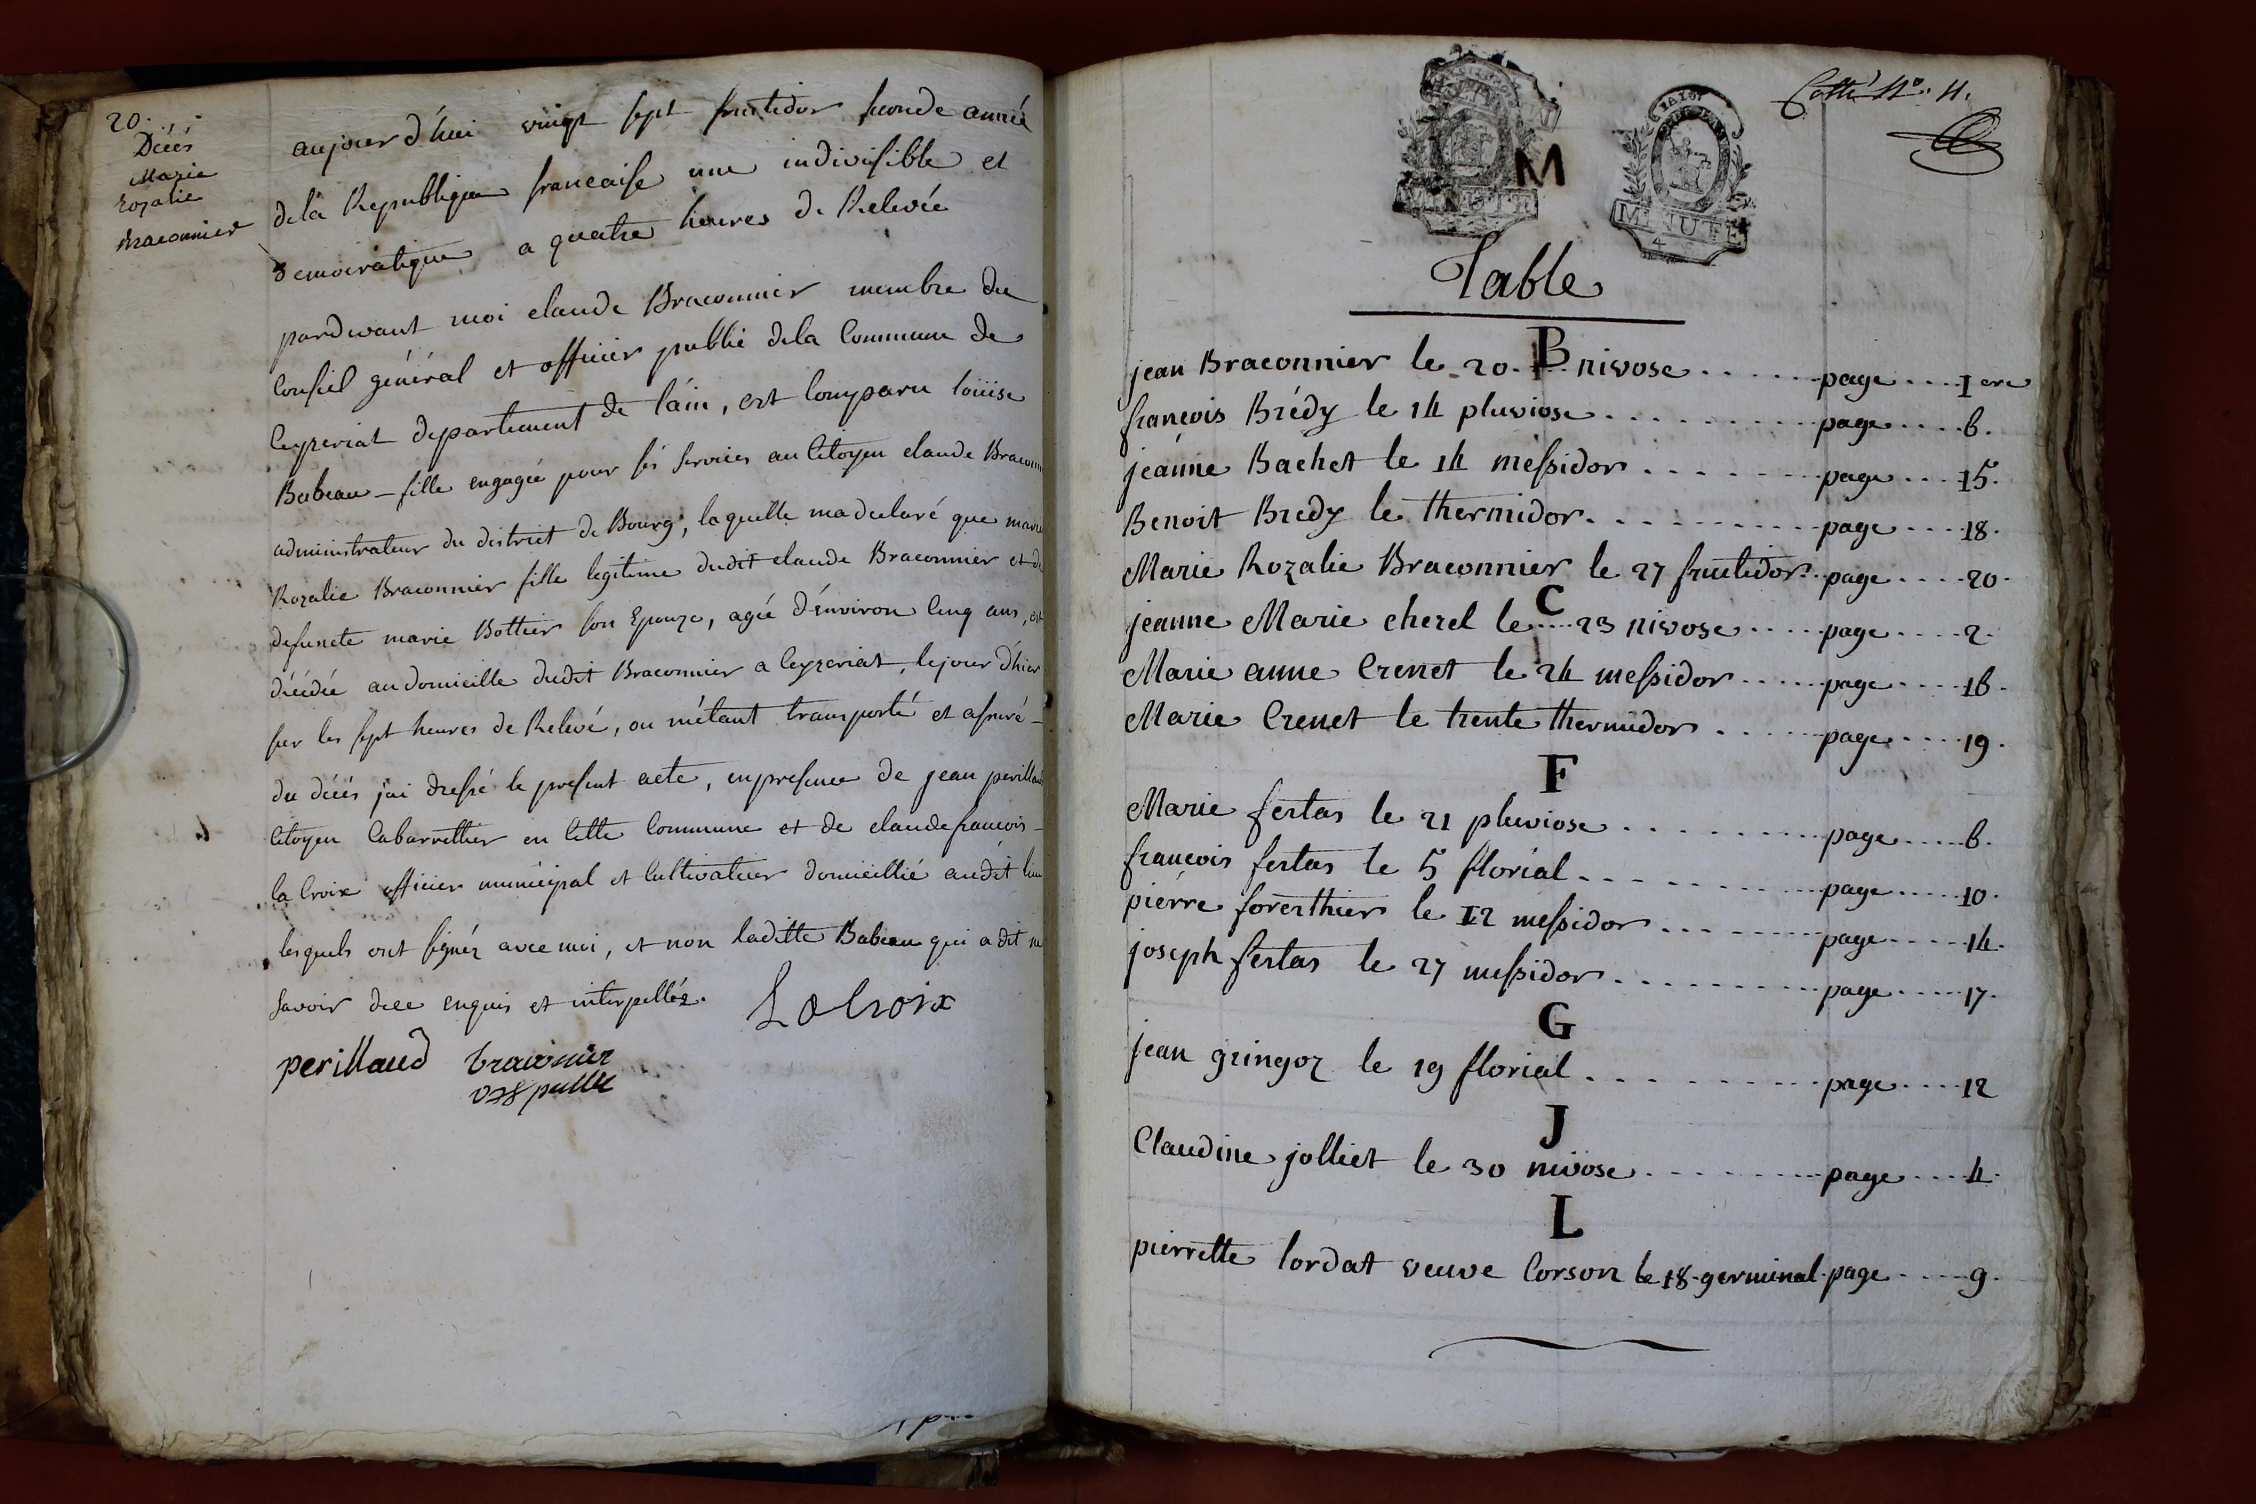 20.
Décés
Marie
Rozalie
Braconnier
aujourd'hui vingt sept fructidor seconde année
dela Republlique francaise une indivisible et
democratique a quatre heures de Relevée
pardevant moi claude Braconnier membre du
Conseil général et officier public dela Commune de
Ceyzeriat departement de láin, est Comparu loüise
Babeau – fille engagée pour ses services au Citoyen claude Braconn
administrateur du district de Bourg, laquelle madeclaré que marie
Rozalie Braconnier fille legitime dudit claude Braconnier et de
defuncte marie Bottier son Epouze, agée d'énviron Cinq ans, est
décédée audomicille dudit Braconnier a Ceyzeriat, lejour d'hier
sur les sept heures de Relevé, ou m'étant transporté et assuré –
du décés jai dressé le present acte, enpresence de jean perillaud
Citoyen Cabarrettier en Cette Commune et de claudefrancois –
la Croix officier municipal et Cultivateur domicillié audit lieu
lesquels ont signéz avec moi, et non laditte Babeau qui a dit ne
savoir dece enquis et interpelléz.
LaCroix
perillaud braconier
off publle
Cotté N°. 4.
M
1816
MINUTE
MINUTE
4
Table
B
jean Braconnier le 20. nivose ...... page .... 1ere
francois Brédy le 14 pluviose ......... page .... 6.
jeánne Bachet le 14 messidor ....... page ... 15.
Benoit Bredy le thermidor .......... page .... 18.
Marie Rozalie Braconnier le 27 fructidor .. page .... 20.
C
jeanne Marie cherel le .... 23 nivose ..... page .... 2.
Marie anne Crenet le 24 messidor ...... page .... 16.
Marie Crenet le trente thermidor ...... page ..... 19.
F
Marie fertas le 21 pluviose .......... page ..... 6.
francois fertas le 5 floréal .......... page ..... 10.
piérre foresthier le 12 messidor ....... page ..... 14.
joseph fertas le 27 messidor .......... page ..... 17.
G
jean gringoz le 19 floréal ......... page .... 12
J
Claudine jolliet le 30 nivose ......... page .... 4.
L
pierrette lordat veuve Corson le 18. germinal. page ..... 9.